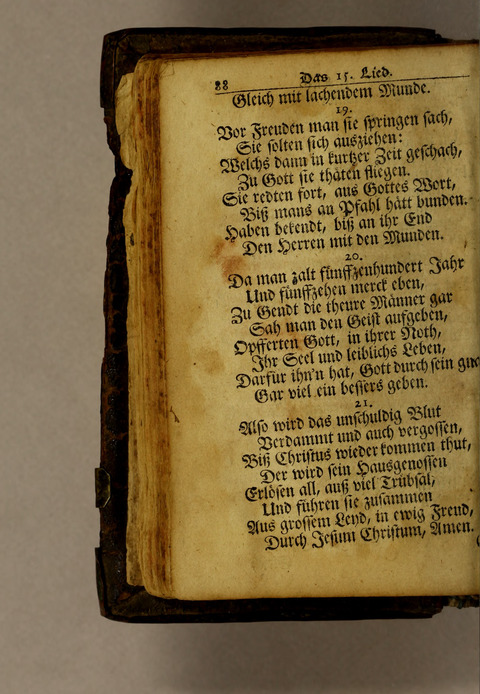 88 Das 15. Lied.
Gleich mit lachendem Munde.
19.
Vor Freuden man sie springen sach,
Sie solten sich ausziehen:
Welchs dann in kurtzer Zeit geschach,
Zu Gott sie thäten fliegen.
Sie redten fort, aus Gottes Wort,
Biß mans an Pfahl hätt bunden.
Haben bekendt, biß an ihr End
Den Herren mit den Munden.
20.
Da man zalt fünffzenhundert Jahr
Und fünffzehen merck eben,
Zu Gendt die theure Männer gar
Sah man den Geist aufgeben,
Opfferten Gott, in ihrer Noth,
Ihr Seel und leiblichs Leben,
Darfür ihn'n hat, Gott durch sein
Gar viel ein bessers geben.
21.
Also wird das unschuldig Blut
Verdammt und auch vergossen,
Biß Christus wieder kommen thut,
Der wird sein Hausgenossen
Erlösen all, auß viel Trübsal,
Und führen sie zusammen
Aus grossem Leyd, in ewig Freud,
Durch Jesum Christum, Amen.